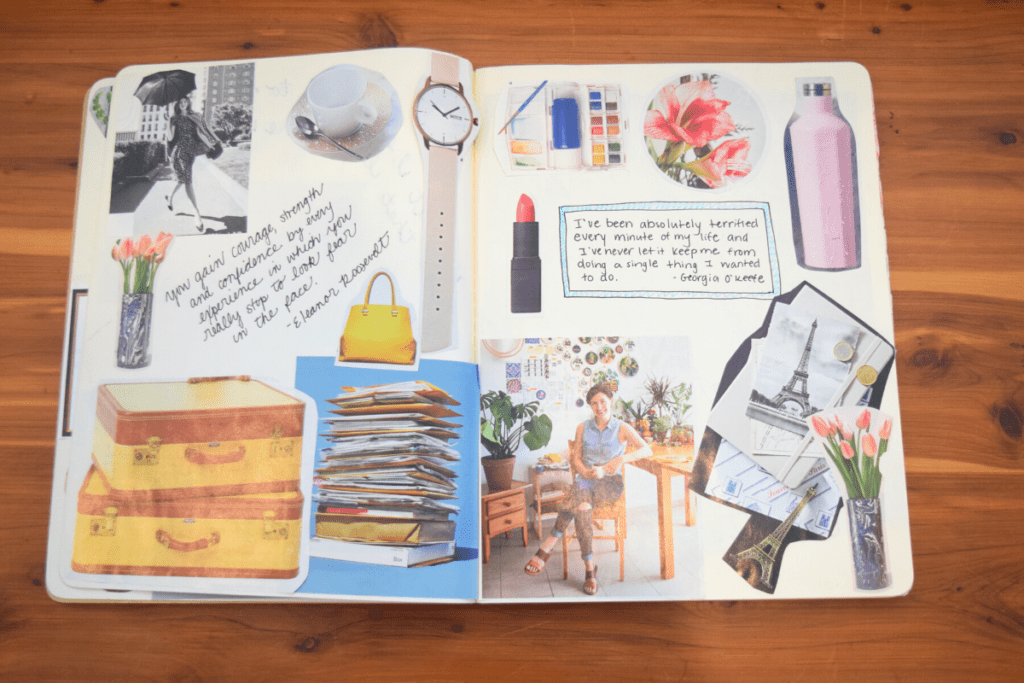 you gain courage, strength
and confidence by every
experience in which you
really stop to look fear
in the face.
-Eleanor Roosevelt
I've been absolutely terrified
every minute of my life and
I've never let it keep me from
doing a single thing I wanted
to do. - Georgia O'Keefe